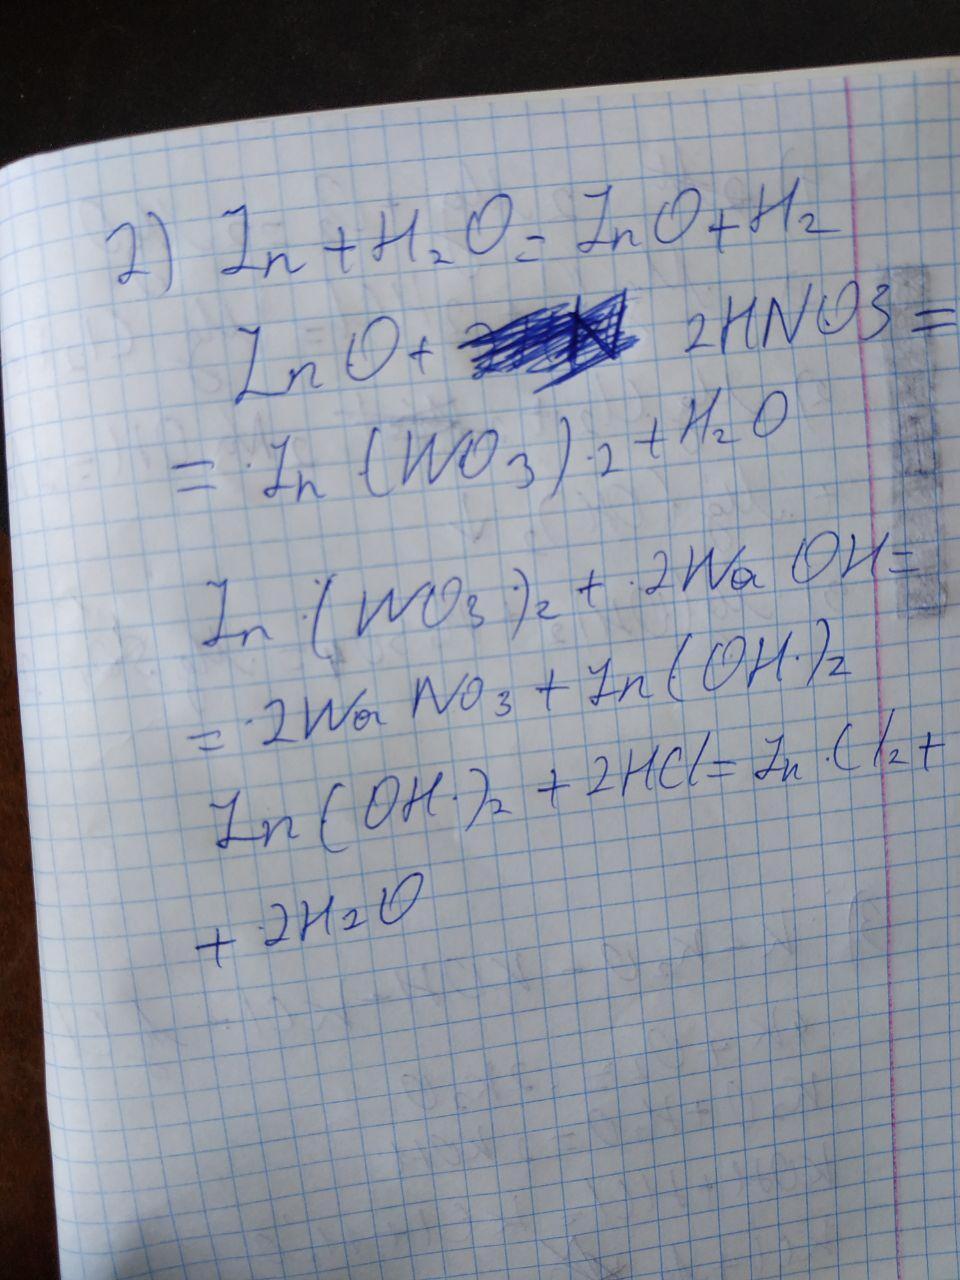 2) Zn + H₂O = ZnO + H₂
ZnO + 2HNO3 =
= Zn (NO₃)₂ + H₂O
Zn (NO₃)₂ + 2NaOH =
= 2NaNO₃ + Zn(OH)₂
Zn(OH)₂ + 2HCl = ZnCl₂ +
+ 2H₂O